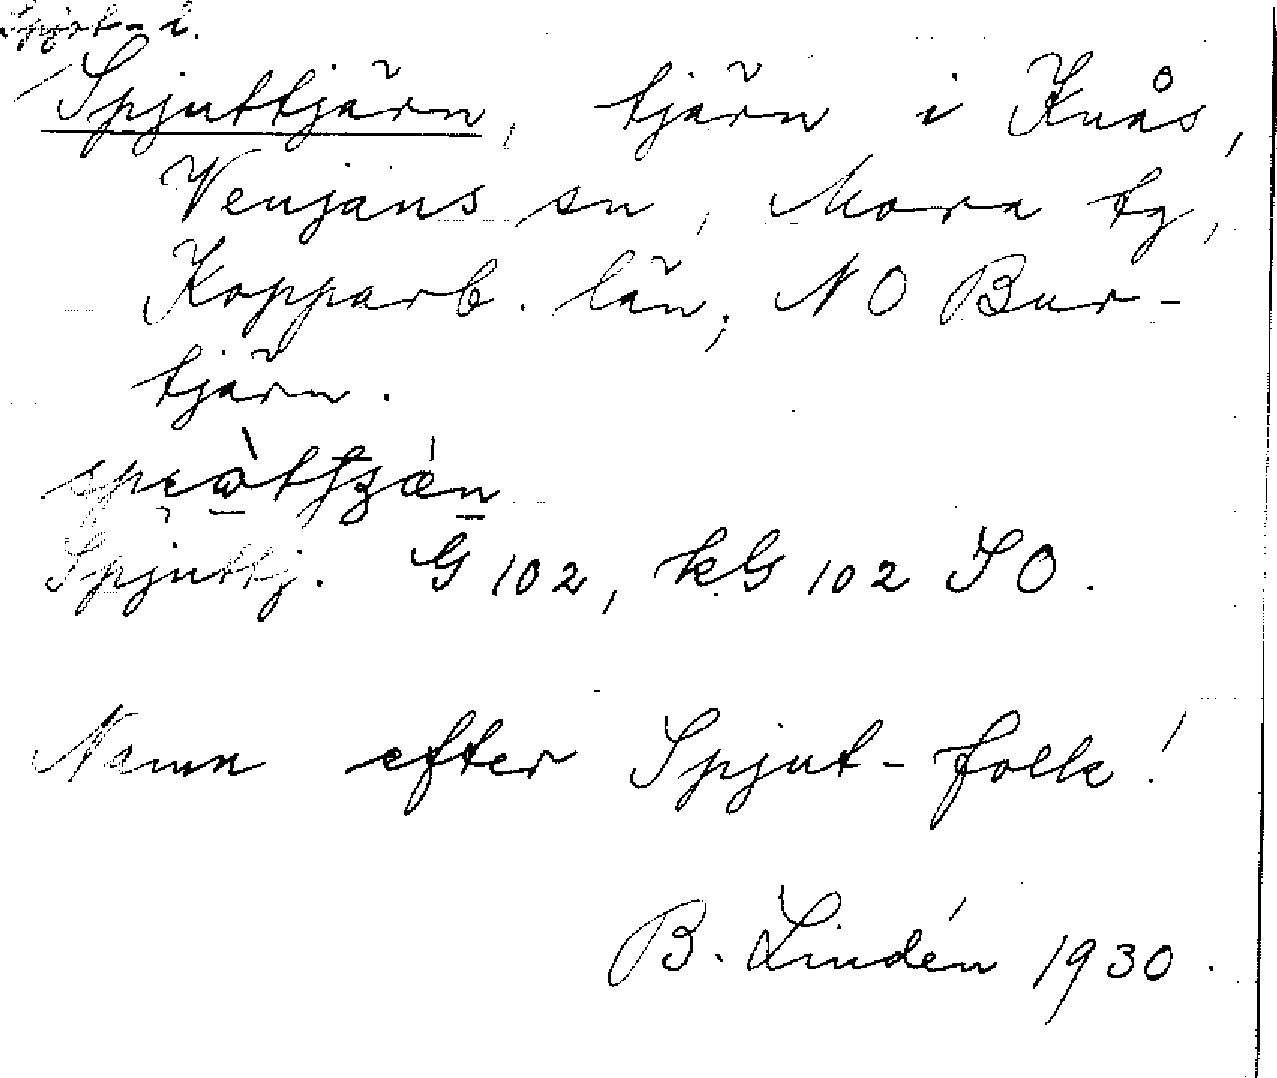 Spjuttjärn, tjärn i Knås,
Venjans sn, Mora tg,
Kopparb. län; NO Bur-
tjärn.
Spjuttj. G 102, kG 102 SO.
Namn efter Spjut-folk!
B. Lindén 1930.